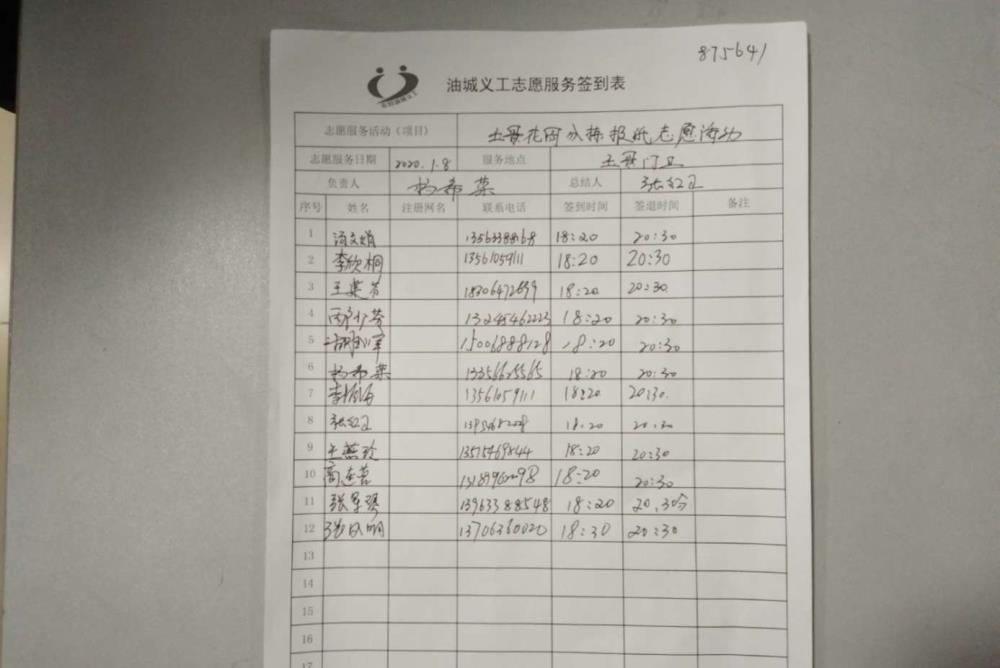 875641
油城义工志愿服务签到表
志愿服务活动（项目） 花园分拣报纸志愿活动
志愿服务日期 2020.1.8 服务地点 门卫
负责人 杨希菜 总结人 张红卫
序号 姓名 注册网名 联系电话 签到时间 签退时间 备注
1 18:20 20:30
2 李欣桐 13561059111 18:20 20:30
3 18:20 20:30
4 13245462223 18:20 20:30
5 15006888128 18:20 20:30
6 杨希菜 13356625565 18:20 20:30
7 13561059111 18:20 20:30.
8 张红卫 18.20 20.30
9 王燕玲 18:20 20:30
10 高连喜 18:20 20:30
11 13963388548 18:20 20.30分
12 13706360020 18:30 20:30
13
14
15
16
17